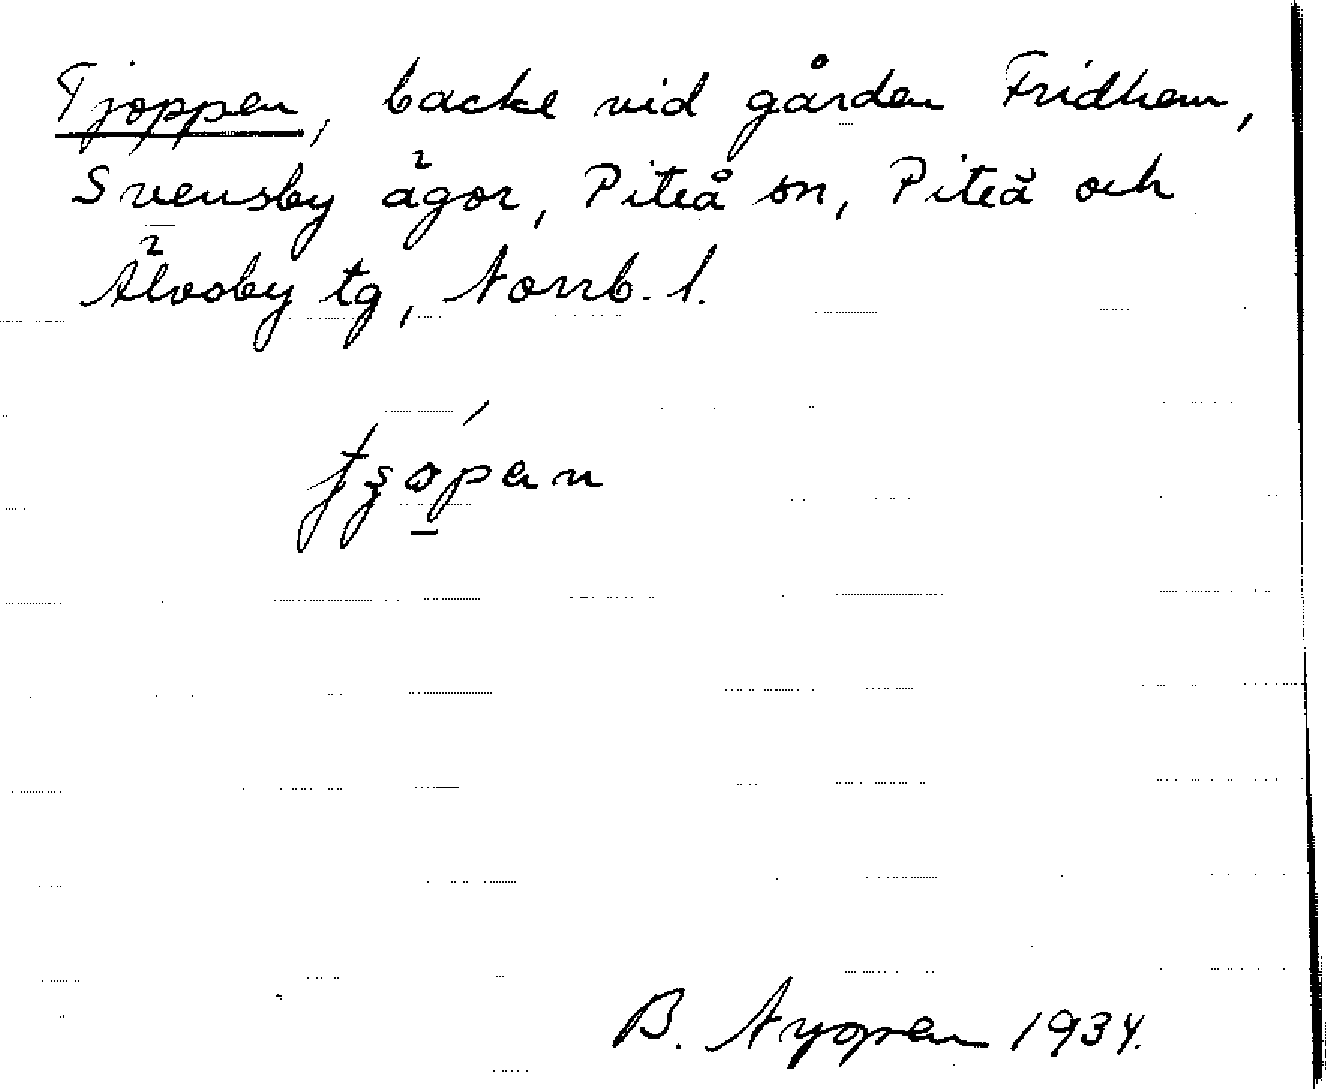 Tjoppen, backe vid gården Fridhem,
Svensby ägor, Piteå sn, Piteå och
Älvsby tg, Norrb. l.
B. Nyopen 1934.